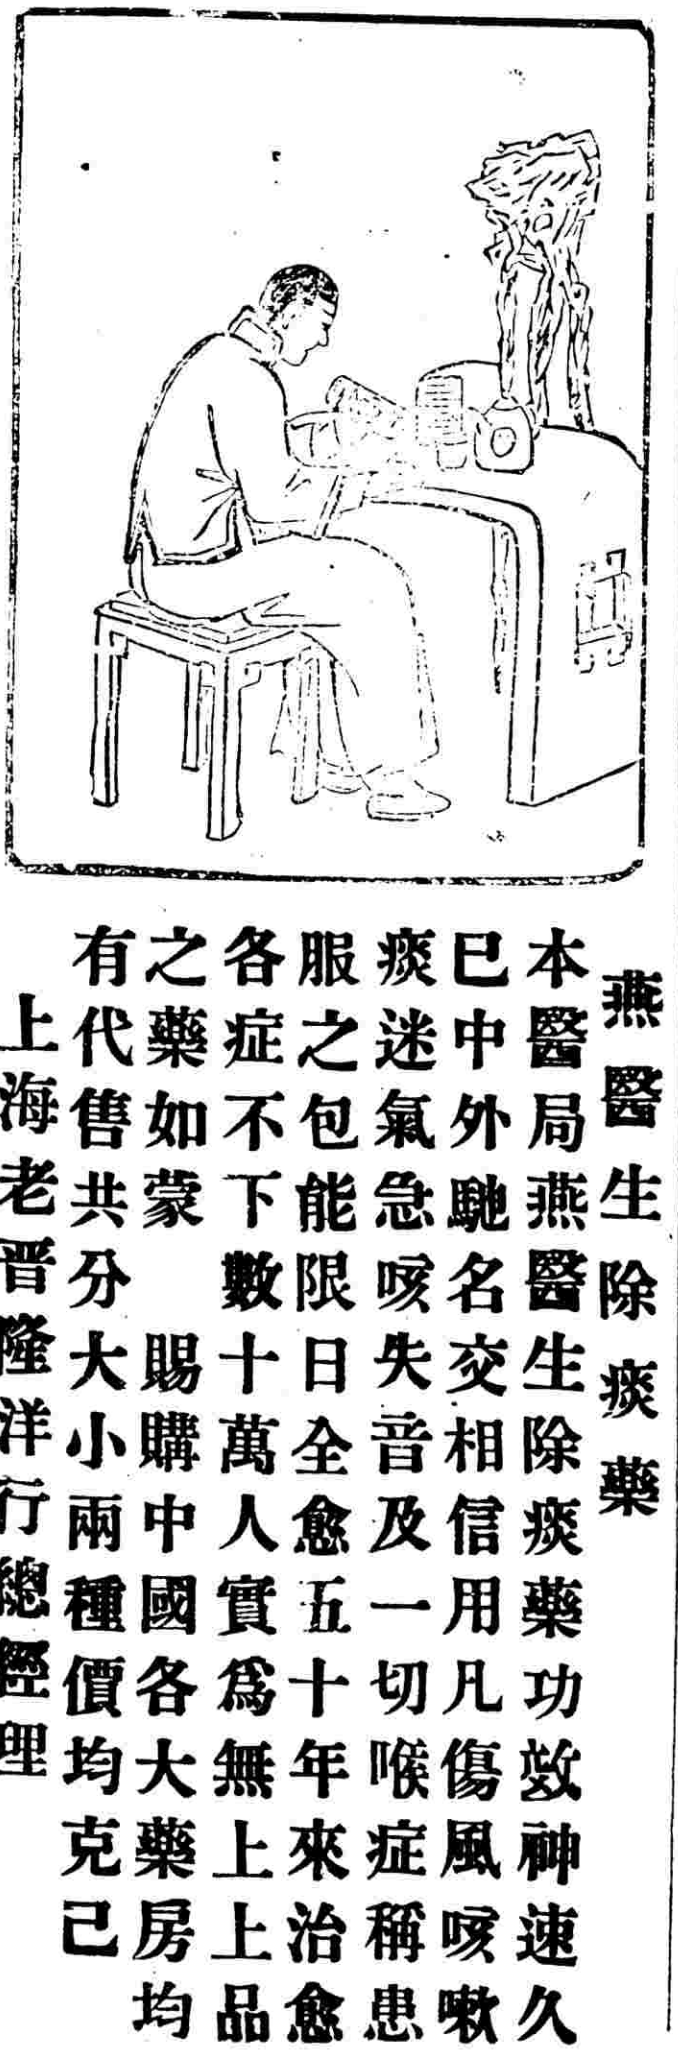 燕醫生除痰藥
本醫局燕醫生除痰藥功效神速久
已中外馳名交相信用凡傷風咳嗽
痰迷氣急咳失音及一切喉症稱患
服之包能限日全愈五十年來治愈
各症不下數十萬人實爲無上上品
之藥如蒙 賜購中國各大藥房均
有代售共分大小兩種價均克己
上海老晋隆洋行總經理